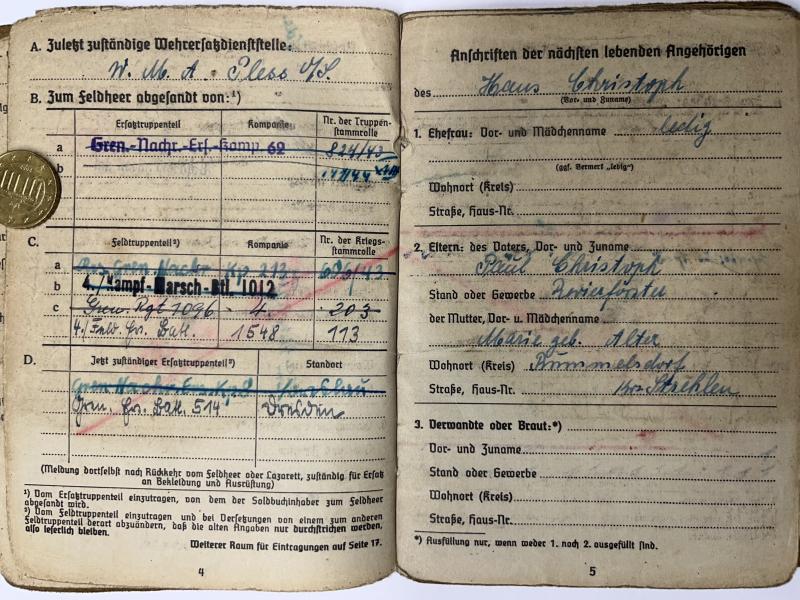 A. Zuletzt zuständige Wehrersatzdienststelle:
W. M. A. Pless O/S.
B. Zum Feldheer abgesandt von:¹)
Ersatztruppenteil Kompanie Nr. der Truppen-
stammrolle
a Gren.-Nachr.-Ers.-Komp. 62 824/43
b
C. Feldtruppenteil²) Kompanie Nr. der Kriegs-
stammrolle
a Gren. Nachr. Kp 213 696/43
b 4./Kampf-Marsch-Btl. 1012
c Gren. Rgt 1096 4. 203
4./Feld. Ers. Batl. 1548 113
D. Jetzt zuständiger Ersatztruppenteil²) Standort
Gren. Ers. Batl. 514 Dresden
(Meldung dortselbst nach Rückkehr vom Feldheer oder Lazarett, zuständig für Ersatz
an Bekleidung und Ausrüstung)
¹) Vom Ersatztruppenteil einzutragen, von dem der Soldbuchinhaber zum Feldheer
abgesandt wird.
²) Vom Feldtruppenteil einzutragen und bei Versetzungen von einem zum anderen
Feldtruppenteil derart abzuändern, daß die alten Angaben nur durchstrichen werden,
also leserlich bleiben.
Weiterer Raum für Eintragungen auf Seite 17.
4
Anschriften der nächsten lebenden Angehörigen
des Hans Christoph
(Vor- und Zuname)
1. Ehefrau: Vor- und Mädchenname ledig
(ggf. Vermerk „ledig")
Wohnort (Kreis)
Straße, Haus-Nr.
2. Eltern: des Vaters, Vor- und Zuname
Paul Christoph
Stand oder Gewerbe Revierförster
der Mutter, Vor- u. Mädchenname
Marie geb. Alter
Wohnort (Kreis) Rummelsdorf
Straße, Haus-Nr. Krs Strehlen
3. Verwandte oder Braut:*)
Vor- und Zuname
Stand oder Gewerbe
Wohnort (Kreis)
Straße, Haus-Nr.
*) Ausfüllung nur, wenn weder 1. noch 2. ausgefüllt sind.
5